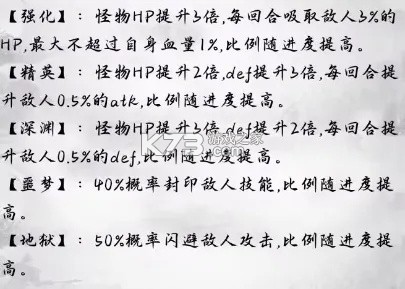 【强化】：怪物HP提升3倍,每回合吸取敌人3%的
HP,最大不超过自身血量1%,比例随进度提高。
【精英】：怪物HP提升2倍,def提升3倍,每回合提
升敌人0.5%的atk,比例随进度提高。
【深渊】：怪物HP提升3倍,def提升2倍,每回合提
升敌人0.5%的def,比例随进度提高。
【噩梦】：40%概率封印敌人技能,比例随进度提
高。
【地狱】：50%概率闪避敌人攻击,比例随进度提
高。
K73
游戏之家
.com